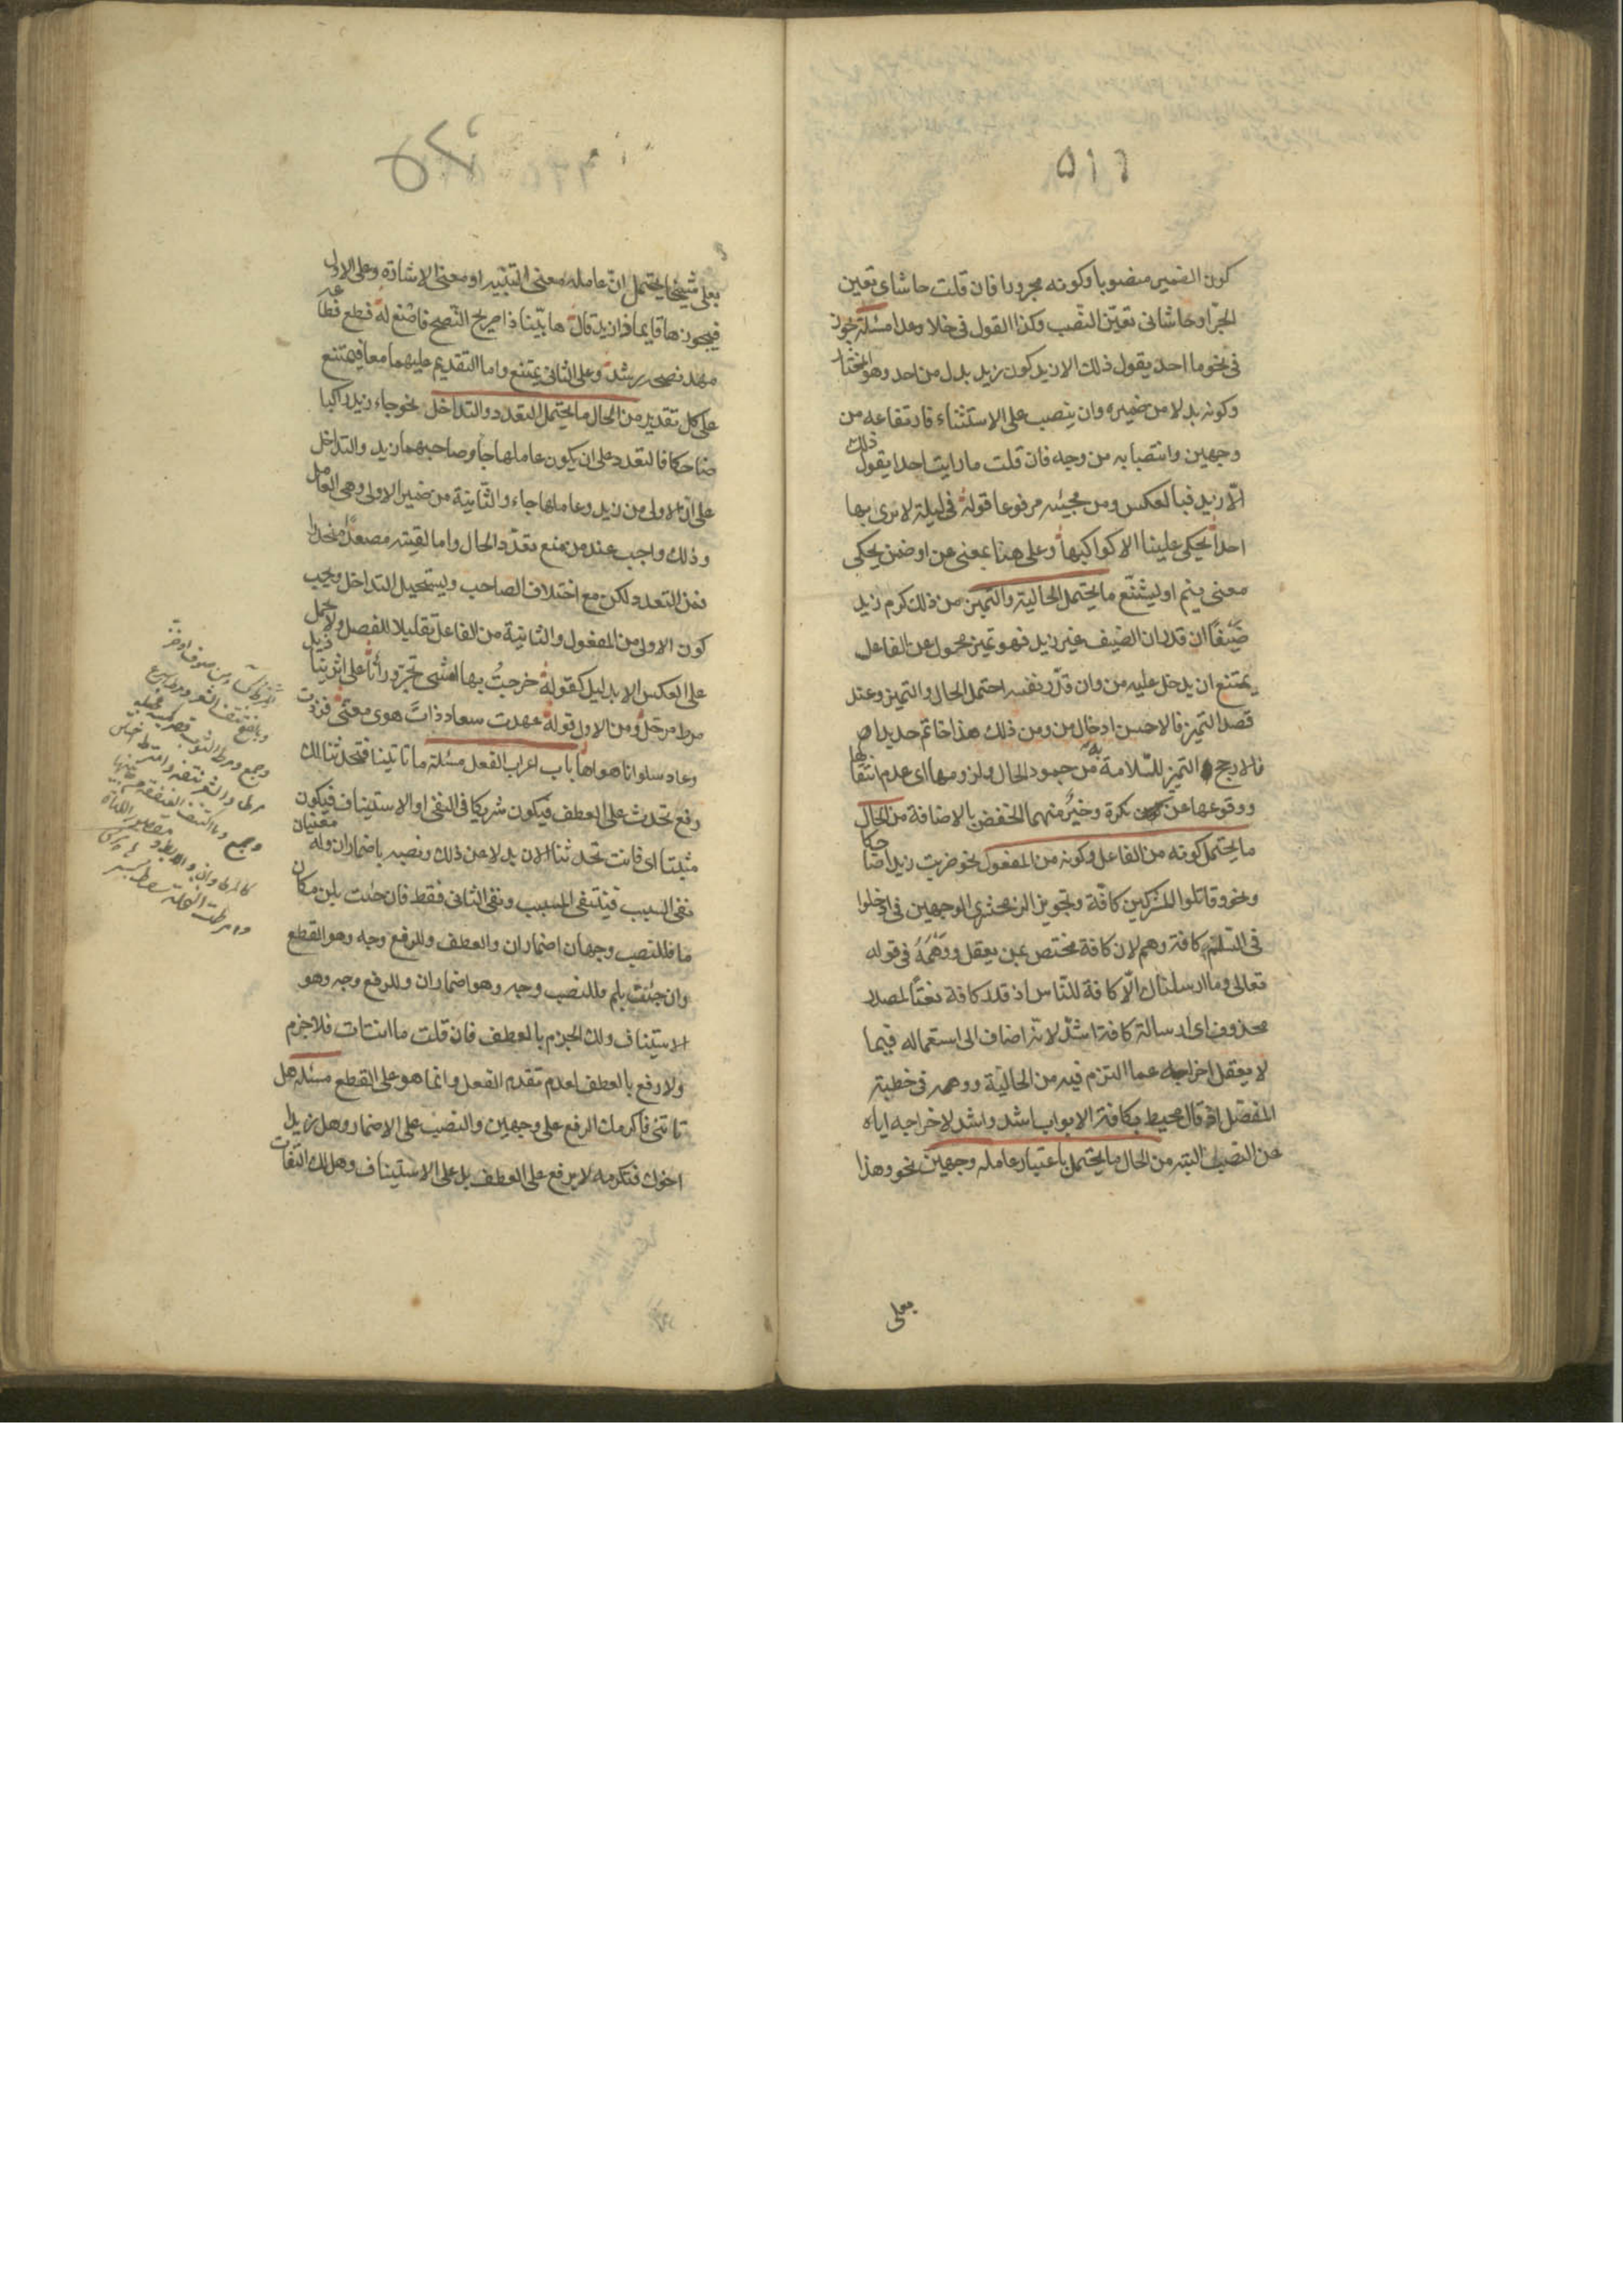 ٥١٦
كون الضمير منصوبا وكونه مجرورا فان قلت حاشاى تعين
الجر او حاشانى تعين النصب وكذا القول فى خلا وعدا مسئلة يجوز
فى نحو ما احد يقول ذلك الا زيد كون زيد بدل من احد وهو المختار
وكونه بدلا من ضميره وان ينصب على الاستثناء فارتفاعه من
وجهين وانتصابه من وجه فان قلت ما رايت احدا يقول ذلك
الا زيد فبالعكس ومن مجيئه مرفوعا قوله فى ليلة لا نرى بها
احدا يحكى علينا الا كواكبها وعلى هنا بمعنى عن او ضمن يحكى
معنى ينم او ليشنّع ما يحتمل الحالية والتميز من ذلك كرم زيد
ضيفًا ان قدر ان الضيف غير زيد فهو تميز محمول عن الفاعل
يمتنع ان يدخل عليه من وان قدّر نفسه احتمل الحال والتميز وعند
قصد التميز فالاحسن ادخال من ومن ذلك هذا خاتم حديدا
فالارجح التميز للسّلامة به من جمود الحال ولزومها اى عدم انتقالها
ووقوعها عن نكرة وخير منهما الخفض بالاضافة من الحال
ما يحتمل كونه من الفاعل وكونه من المفعول نحو ضربت زيدا ضاحكا
ونحو وقاتلوا المشركين كافة وتجويز الزمخشرى الوجهين فى ادخلوا
فى السّلم كافة وهم لان كافة مختص بمن يعقل ووهمه فى قوله
تعالى وما ارسلناك الّا كافة للنّاس اذ قدر كافة نعتًا لمصدر
محذوف اى ارسالة كافة اشدّ لانه اضاف الى استعماله فيما
لا يعقل اخراجه عما التزم فيه من الحالية ووهمه فى خطبة
المفصّل اذ قال محيط بكافة الابواب اشد واشد لاخراجه اياه
عن النصب البتة من الحال ما يحتمل باعتبار عامله وجهين نحو وهذا
بعلى
بعلى شيخا يحتمل انّ عامله معنى التنبيه او معنى الاشارة وعلى الاول
فيجوز ها قايما ذا زيد قال ها بيّنا ذا صريح النّصح فاصنع له فطع فطاعة
مهد نصحه رشد وعلى الثانى يمتنع واما التقديم عليهما معا فيمتنع
على كل تقدير من الحال ما يحتمل التعدد والتداخل نحو جاء زيد راكبا
ضاحكا فالتعدد على ان يكون عاملها جاء وصاحبهما زيد والتداخل
على ان الاولى من زيد وعاملها جاء والثانية من ضمير الاولى وهى العامل
وذلك واجب عند من منع تعدّد الحال واما لقيته مصعدًا منحدرا
فمن التعدد لكن مع اختلاف الصاحب ويستحيل التداخل ويجب
كون الاولى من المفعول والثانية من الفاعل تقليلا للفصل ولا يحمل
على العكس الا بدليل كقوله خرجتُ بها امشى تجرّ ورائنا على اثرينا ذيل
مرط مرحّل ومن الاول قوله عهدت سعاد ذات هوى معنّى فزدت
وعاد سلوانا هواها باب اعراب الفعل مسئلة ما تاتينا فتحدثنا لك
رفع تحدث على العطف فيكون شريكا فى النفى او الاستيناف فيكون
مثبتا اى فانت تحدثنا الان بدلا من ذلك ونصبه باضمار ان وله معنيان
نفى السبب فينتفى المسبب ونفى الثانى فقط فان جئت بلن مكان
ما فللنصب وجهان اضمار ان والعطف وللرفع وجه وهو القطع
وان جئت بلم فللنصب وجه وهو اضمار ان وللرفع وجه وهو
الاستيناف ولك الجزم بالعطف فان قلت ما انت ات فلا جزم
ولا رفع بالعطف لعدم تقدم الفعل وانما هو على القطع مسئلة هل
تاتنى فاكرمك الرفع على وجهين والنصب على الاضمار وهل زيد
اخوك فتكرمه لا يرفع على العطف بل على الاستيناف وهل لك التفات